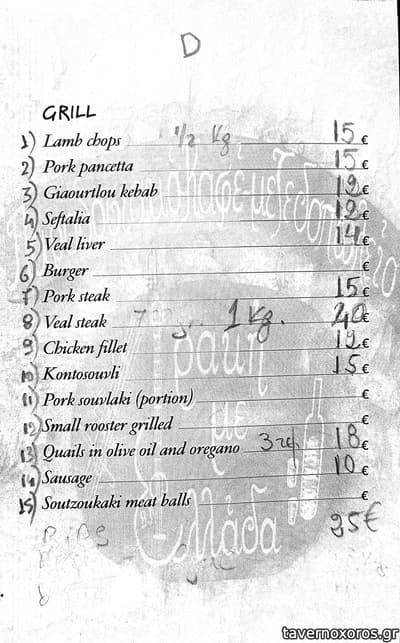 D
GRILL
1) Lamb chops 1/2 Kg 15 €
2) Pork pancetta 15 €
3) Giaourtlou kebab 12 €
4) Seftalia 12 €
5) Veal liver 14 €
6) Burger €
7) Pork steak 15 €
8) Veal steak 1 Kg. 40 €
9) Chicken fillet 12 €
10) Kontosouvli 15 €
11) Pork souvlaki (portion) €
12) Small rooster grilled €
13) Quails in olive oil and oregano 3 18 €
14) Sausage 10 €
15) Soutzoukaki meat balls €
€
tavernoxoros.gr